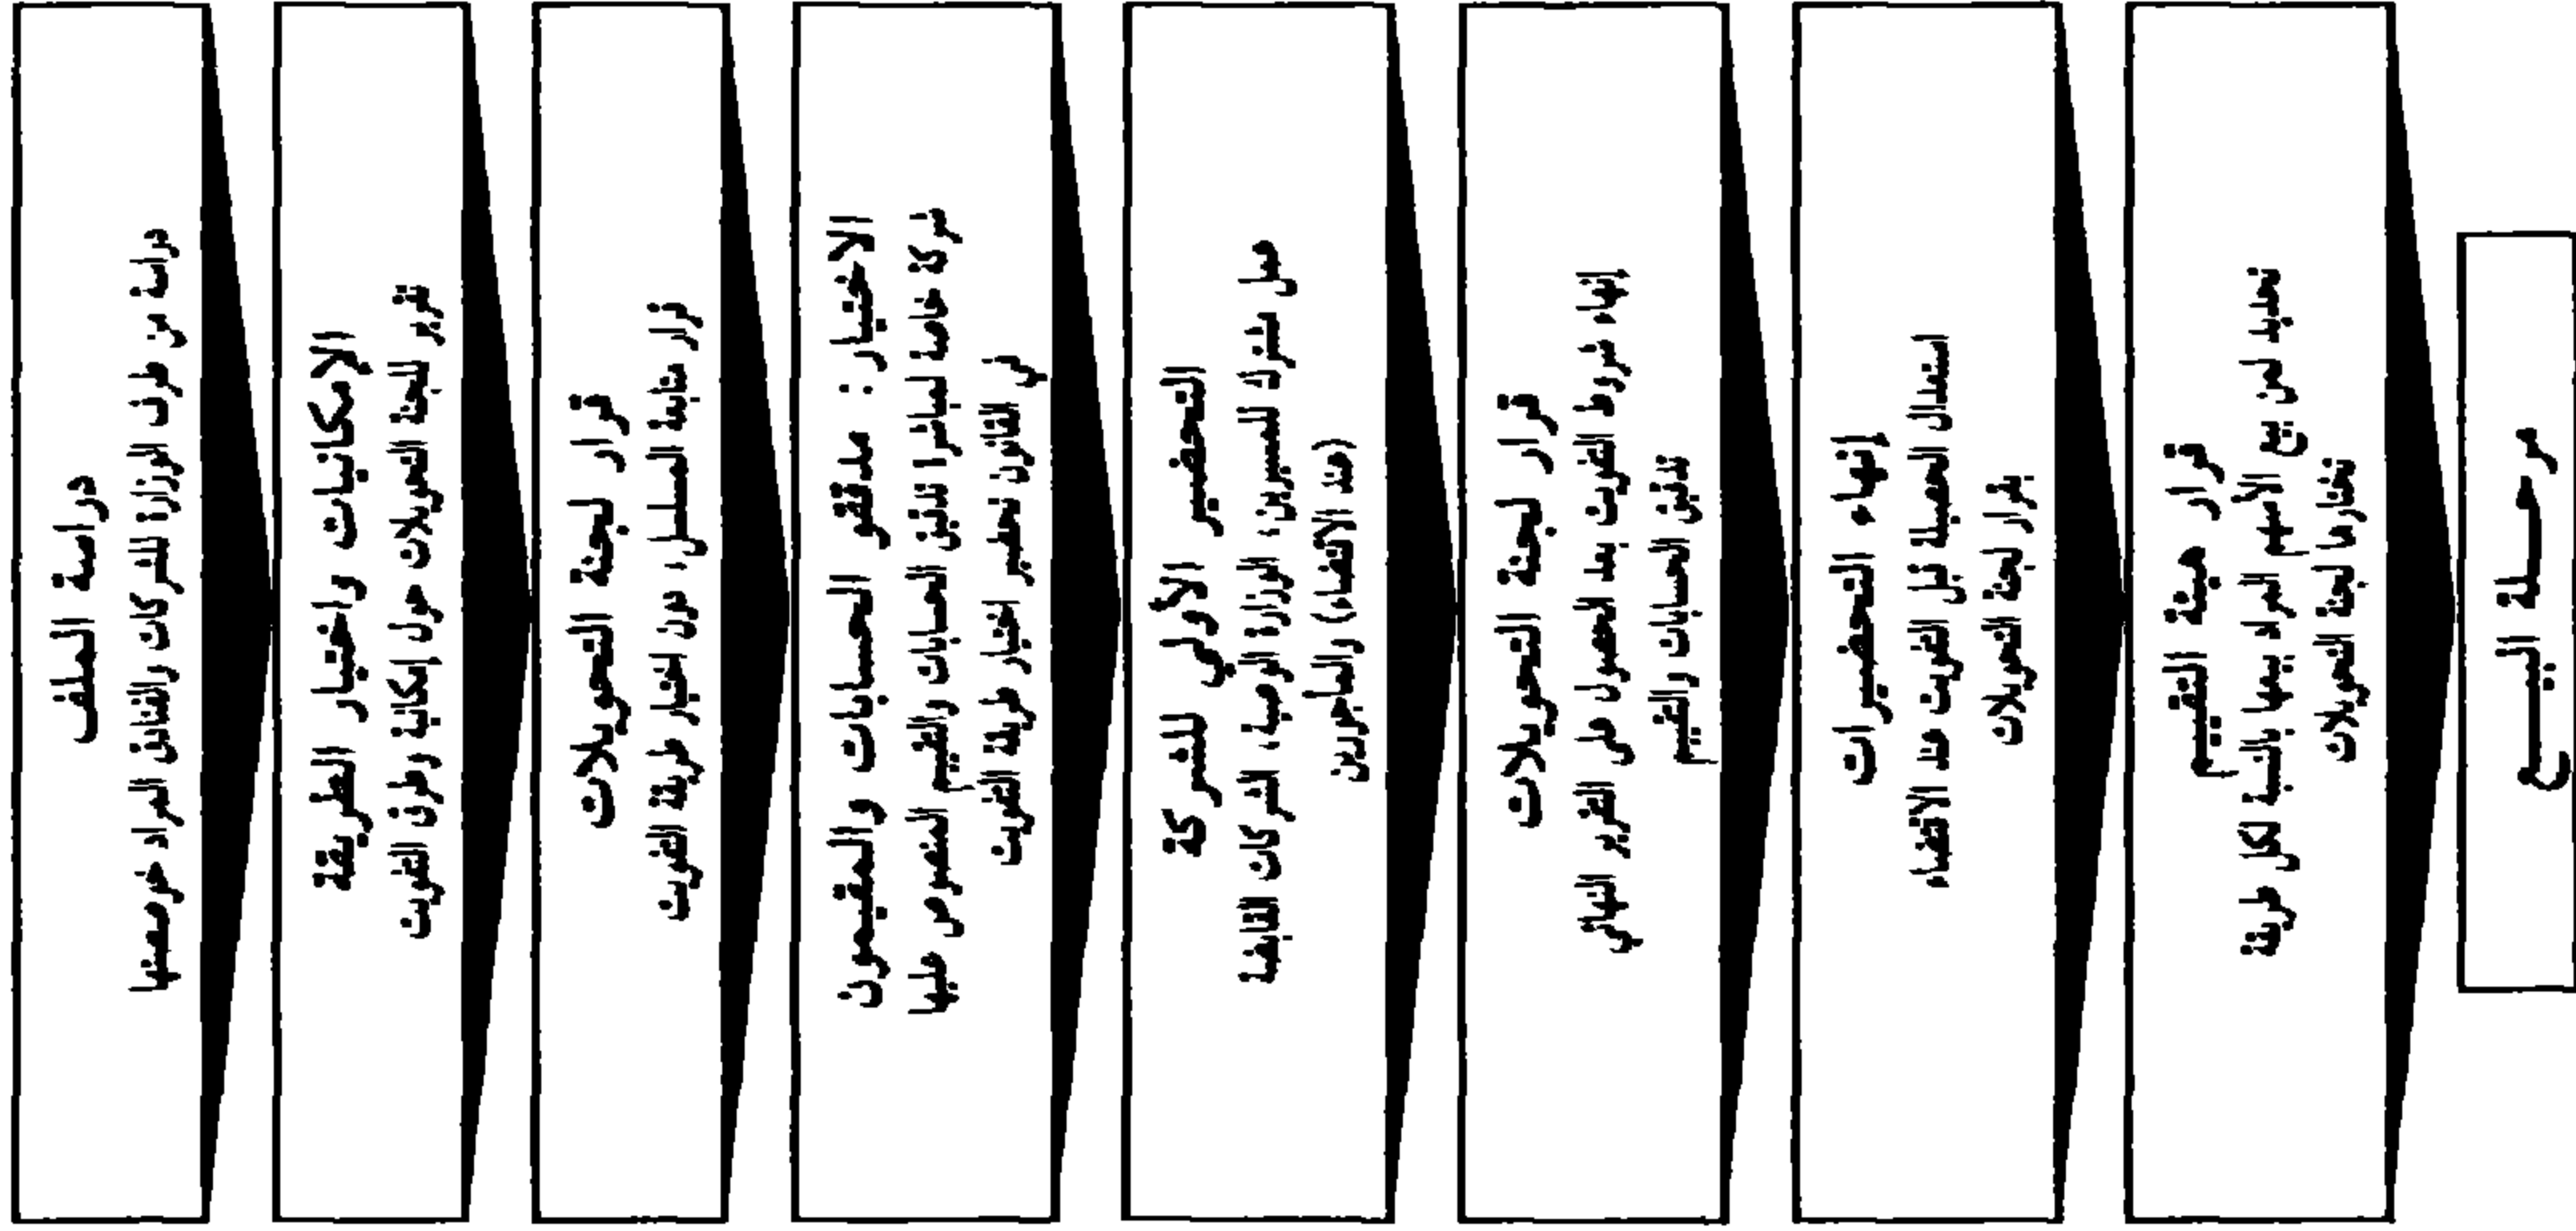 دراسة الملف
دراسة من طرف الوزارة للشركات والفنادق المراد خوصصتها
الإمكانيات واختيار الطريقة
تقرير للجنة التحويلات حول إمكانية وطرق التفويت
قرار لجنة التحويلات
قرار متابعة المسلسل، دون اختيار طريقة التفويت
الاختيار : مدققو الحسابات والمقيمون
شركة خاصة لمباشرة تدقيق الحسابات والتقييم المنصوص عليها
في القانون تحضير اختيار طريقة التفويت
التحضير الأولي للشركة
عمل مشترك للمسيرين، الوزارة الوصية، الشركات القابضة
(عند الاقتضاء) والمأجورين
قرار لجنة التحويلات
إنهاء شروط التفويت بعد الحصول على التقرير النهائي
تدقيق الحسابات والتقييم
إنهاء التحضيرات
استعمال الحصيلة قبل التفويت عند الاقتضاء
بقرار لجنة التحويلات
قرار هيئة التقييم
تحديد ثمن بيع الأسهم المراد بيعها بالنسبة لكل طريقة
تختارها لجنة التحويلات
مرحلة البيع